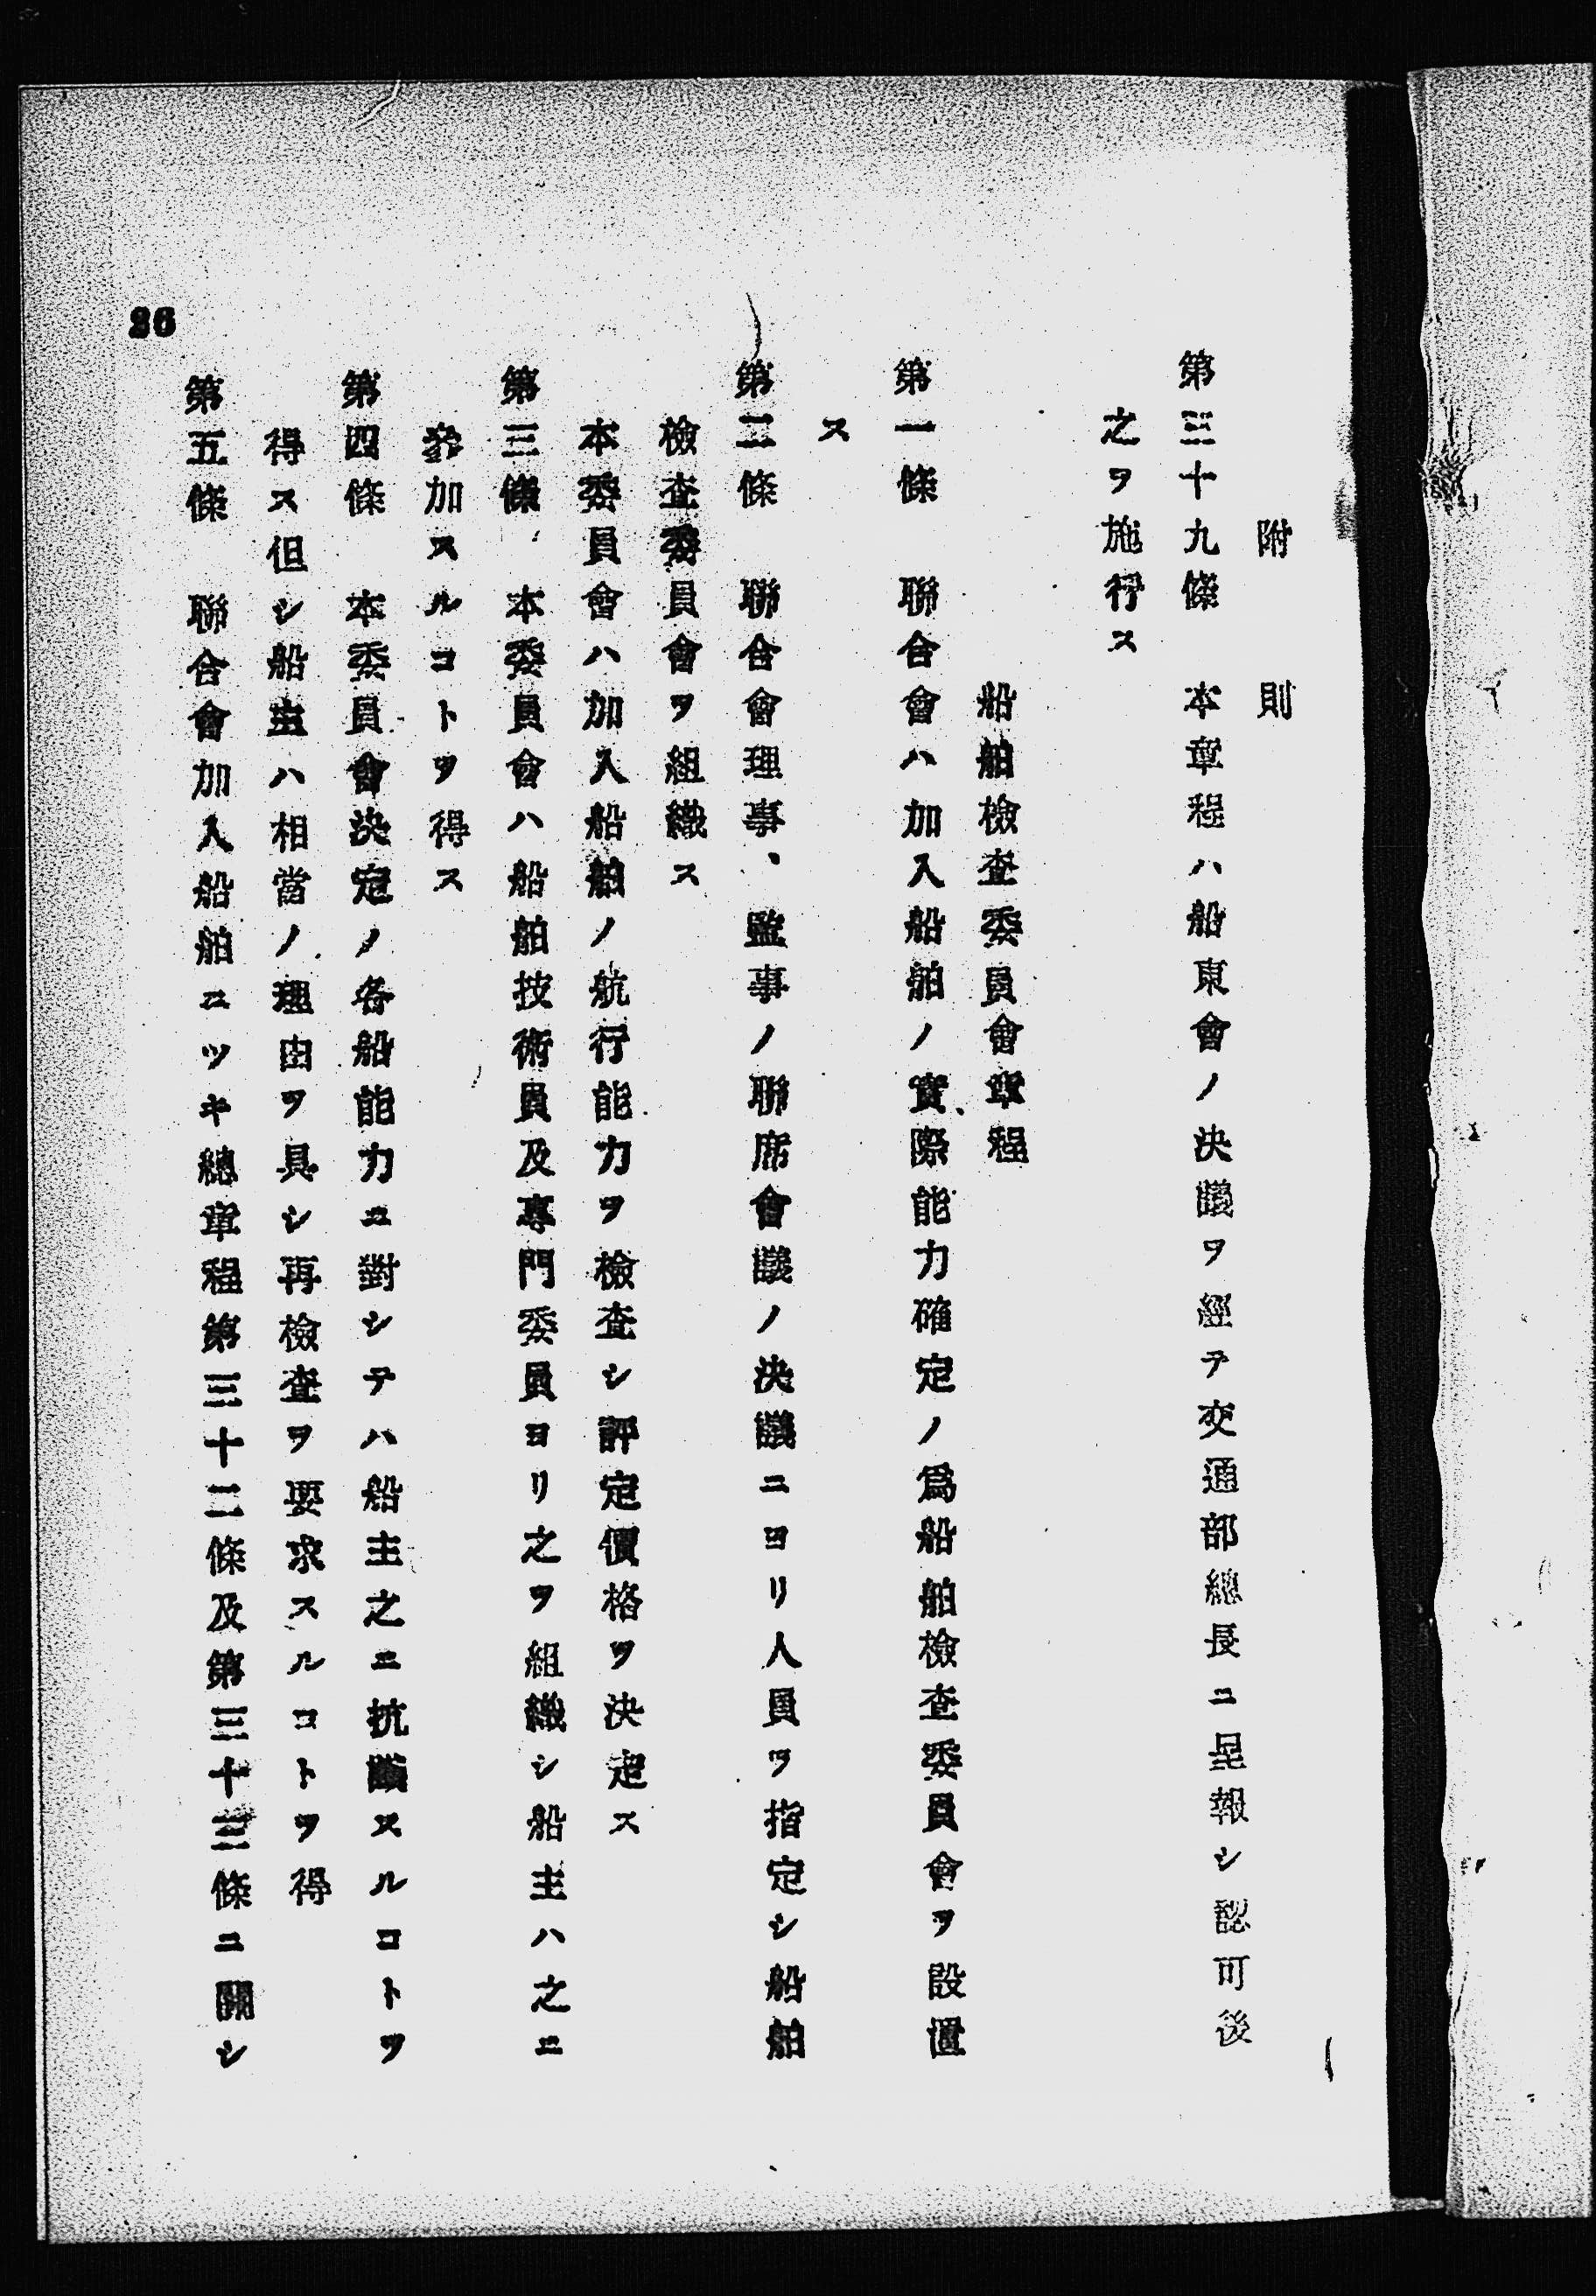 附則
第三十九條　本章程ハ船東會ノ決議ヲ經テ交通部總長ニ呈報シ認可後
之ヲ施行ス
船舶檢查委員會章程
第一條　聯合會ハ加入船舶ノ實際能力確定ノ爲船舶檢查委員會ヲ設置
ス
第二條　聯合會理事、監事ノ聯席會議ノ決議ニヨリ人員ヲ指定シ船舶
檢查委員會ヲ組織ス
本委員會ハ加入船舶ノ航行能力ヲ檢查シ評定價格ヲ決定ス
第三條　本委員會ハ船舶技術員及專門委員ヨリ之ヲ組織シ船主ハ之ニ
參加スルコトヲ得ス
第四條　本委員會決定ノ各船能力ニ對シテハ船主之ニ抗議スルコトヲ
得ス但シ船主ハ相當ノ理由ヲ具シ再檢查ヲ要求スルコトヲ得
第五條　聯合會加入船舶ニツキ總章程第三十二條及第三十三條ニ關シ
26